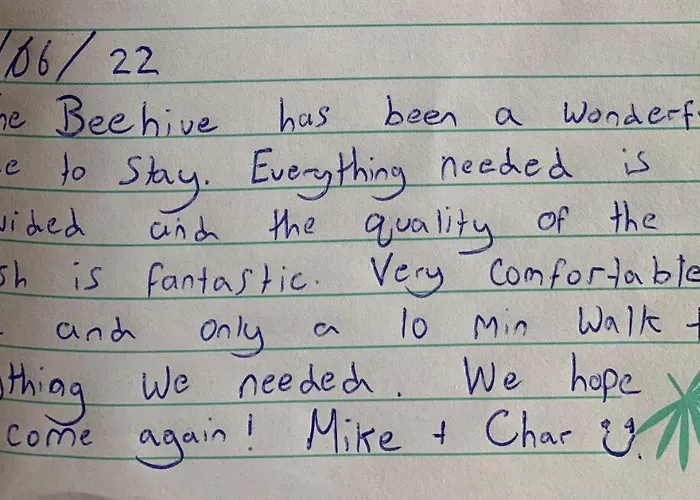 /06/ 22
he Beehive has been a wonderf
e to stay. Everything needed is
vided and the quality of the
sh is fantastic. Very comfortable
and only a 10 min walk t
thing we needed. We hope
come again! Mike + Char